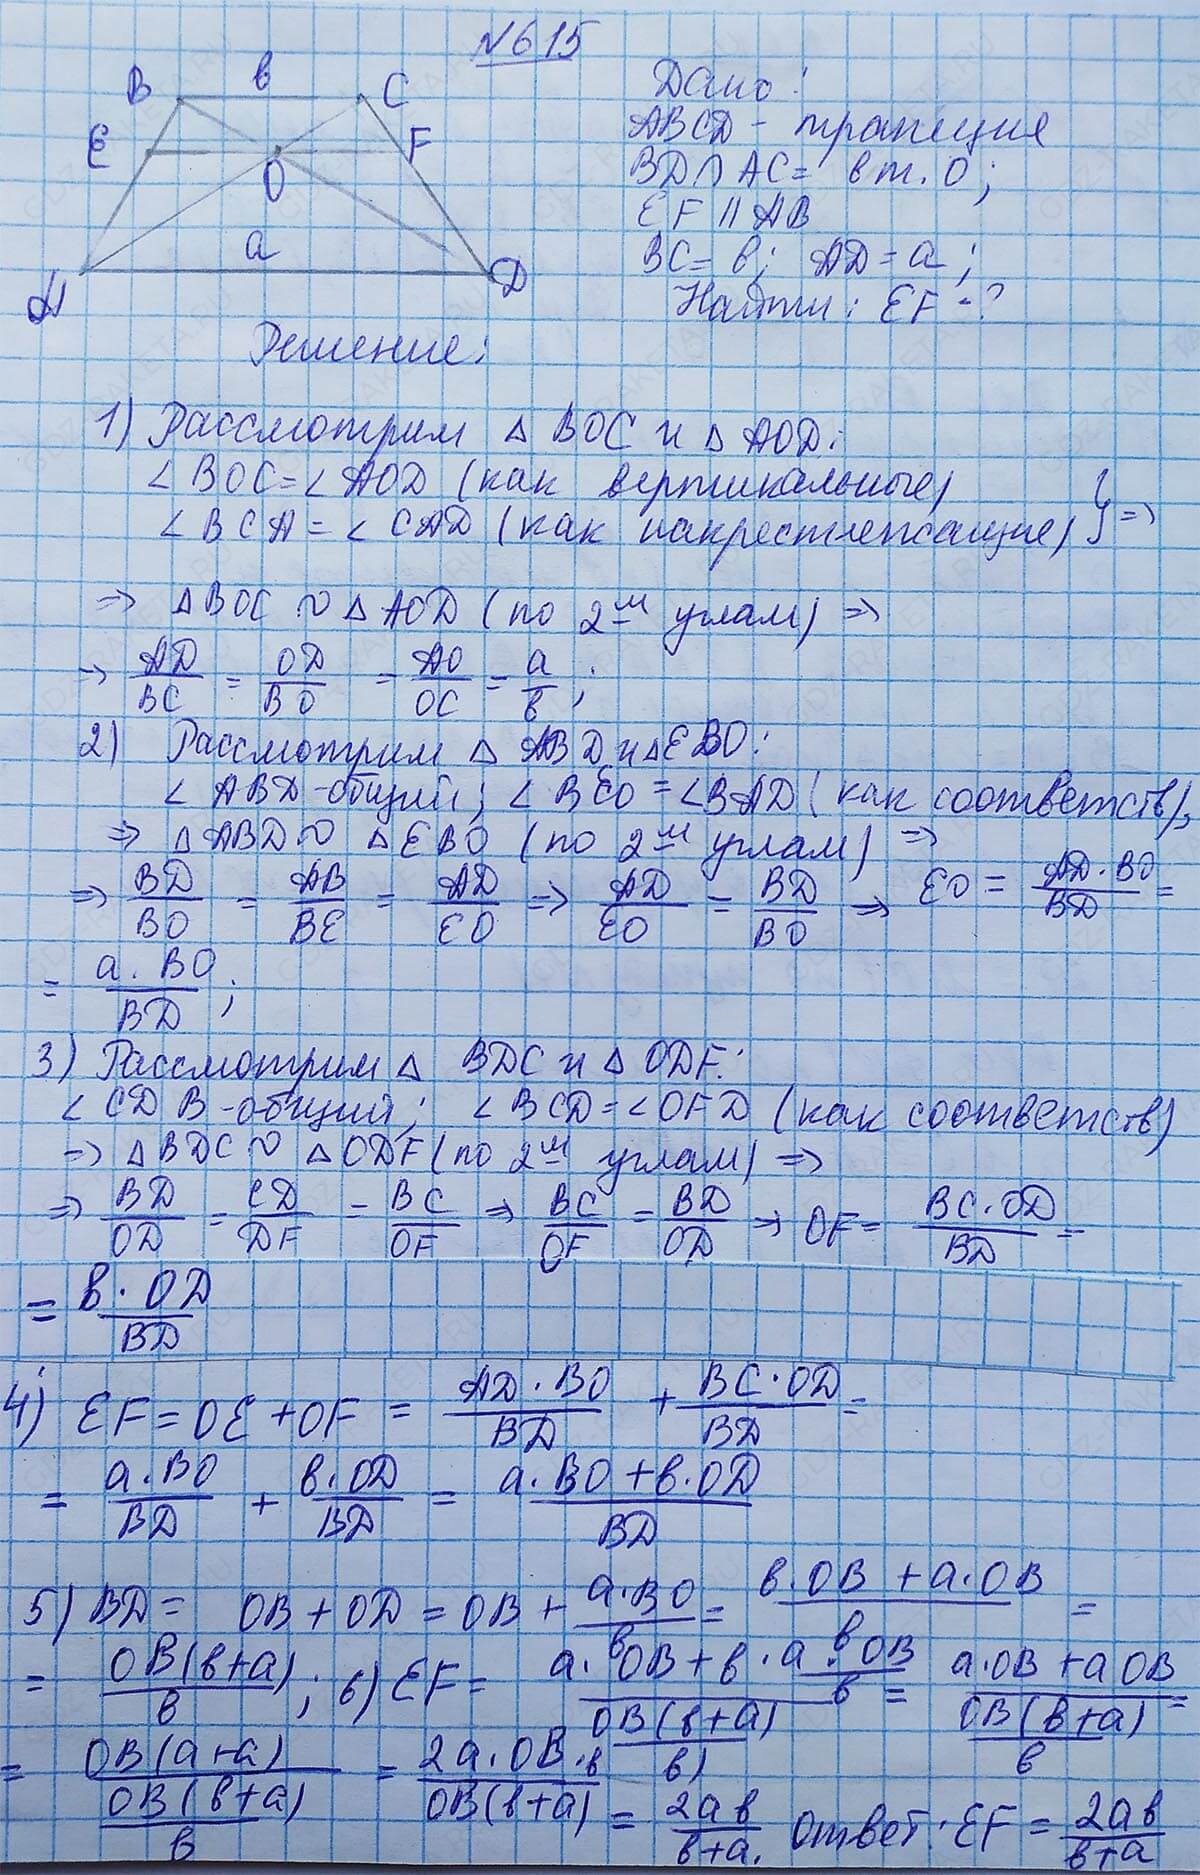 №615
B в C
E F
O
a
A D
Дано:
ABCD - трапеция
BD∩AC= в т. O;
EF || AB
BC= в; AD=a;
Найти: EF -?
Решение:
1) Рассмотрим △ BOC и △ AOD:
∠BOC=∠AOD (как вертикальные)
∠BCA=∠CAD (как накрестлежащие) } =>
=> △BOC ∾ △AOD (по 2м углам) =>
=> AD/BC = OD/BO = AO/OC = a/в ;
2) Рассмотрим △ ABD и △EBO:
∠ABD-общий; ∠BEO=∠BAD (как соответств),
=> △ABD ∾ △EBO (по 2м углам) =>
=> BD/BO = AB/BE = AD/EO => AD/EO = BD/BO => EO = AD·BO/BD =
= a·BO/BD ;
3) Рассмотрим △ BDC и △ ODF:
∠CDB-общий; ∠BCD=∠OFD (как соответств)
=> △BDC ∾ △ODF (по 2м углам) =>
=> BD/OD = CD/DF = BC/OF => BC/OF = BD/OD => OF = BC·OD/BD =
= в·OD/BD
4) EF=OE+OF = AD·BO/BD + BC·OD/BD =
= a·BO/BD + в·OD/BD = a·BO+в·OD/BD
5) BD= OB+OD=OB+ a·BO/в = в·OB+a·OB/в =
= OB(в+a)/в ; 6) EF= a·OB+в·a·OB/в / OB(в+a)/в) = a·OB+aOB / OB(в+a)/в =
= OB(a+a) / OB(в+a)/в = 2a·OB·в/OB(в+a) = 2aв/в+a. Ответ: EF= 2aв/в+a